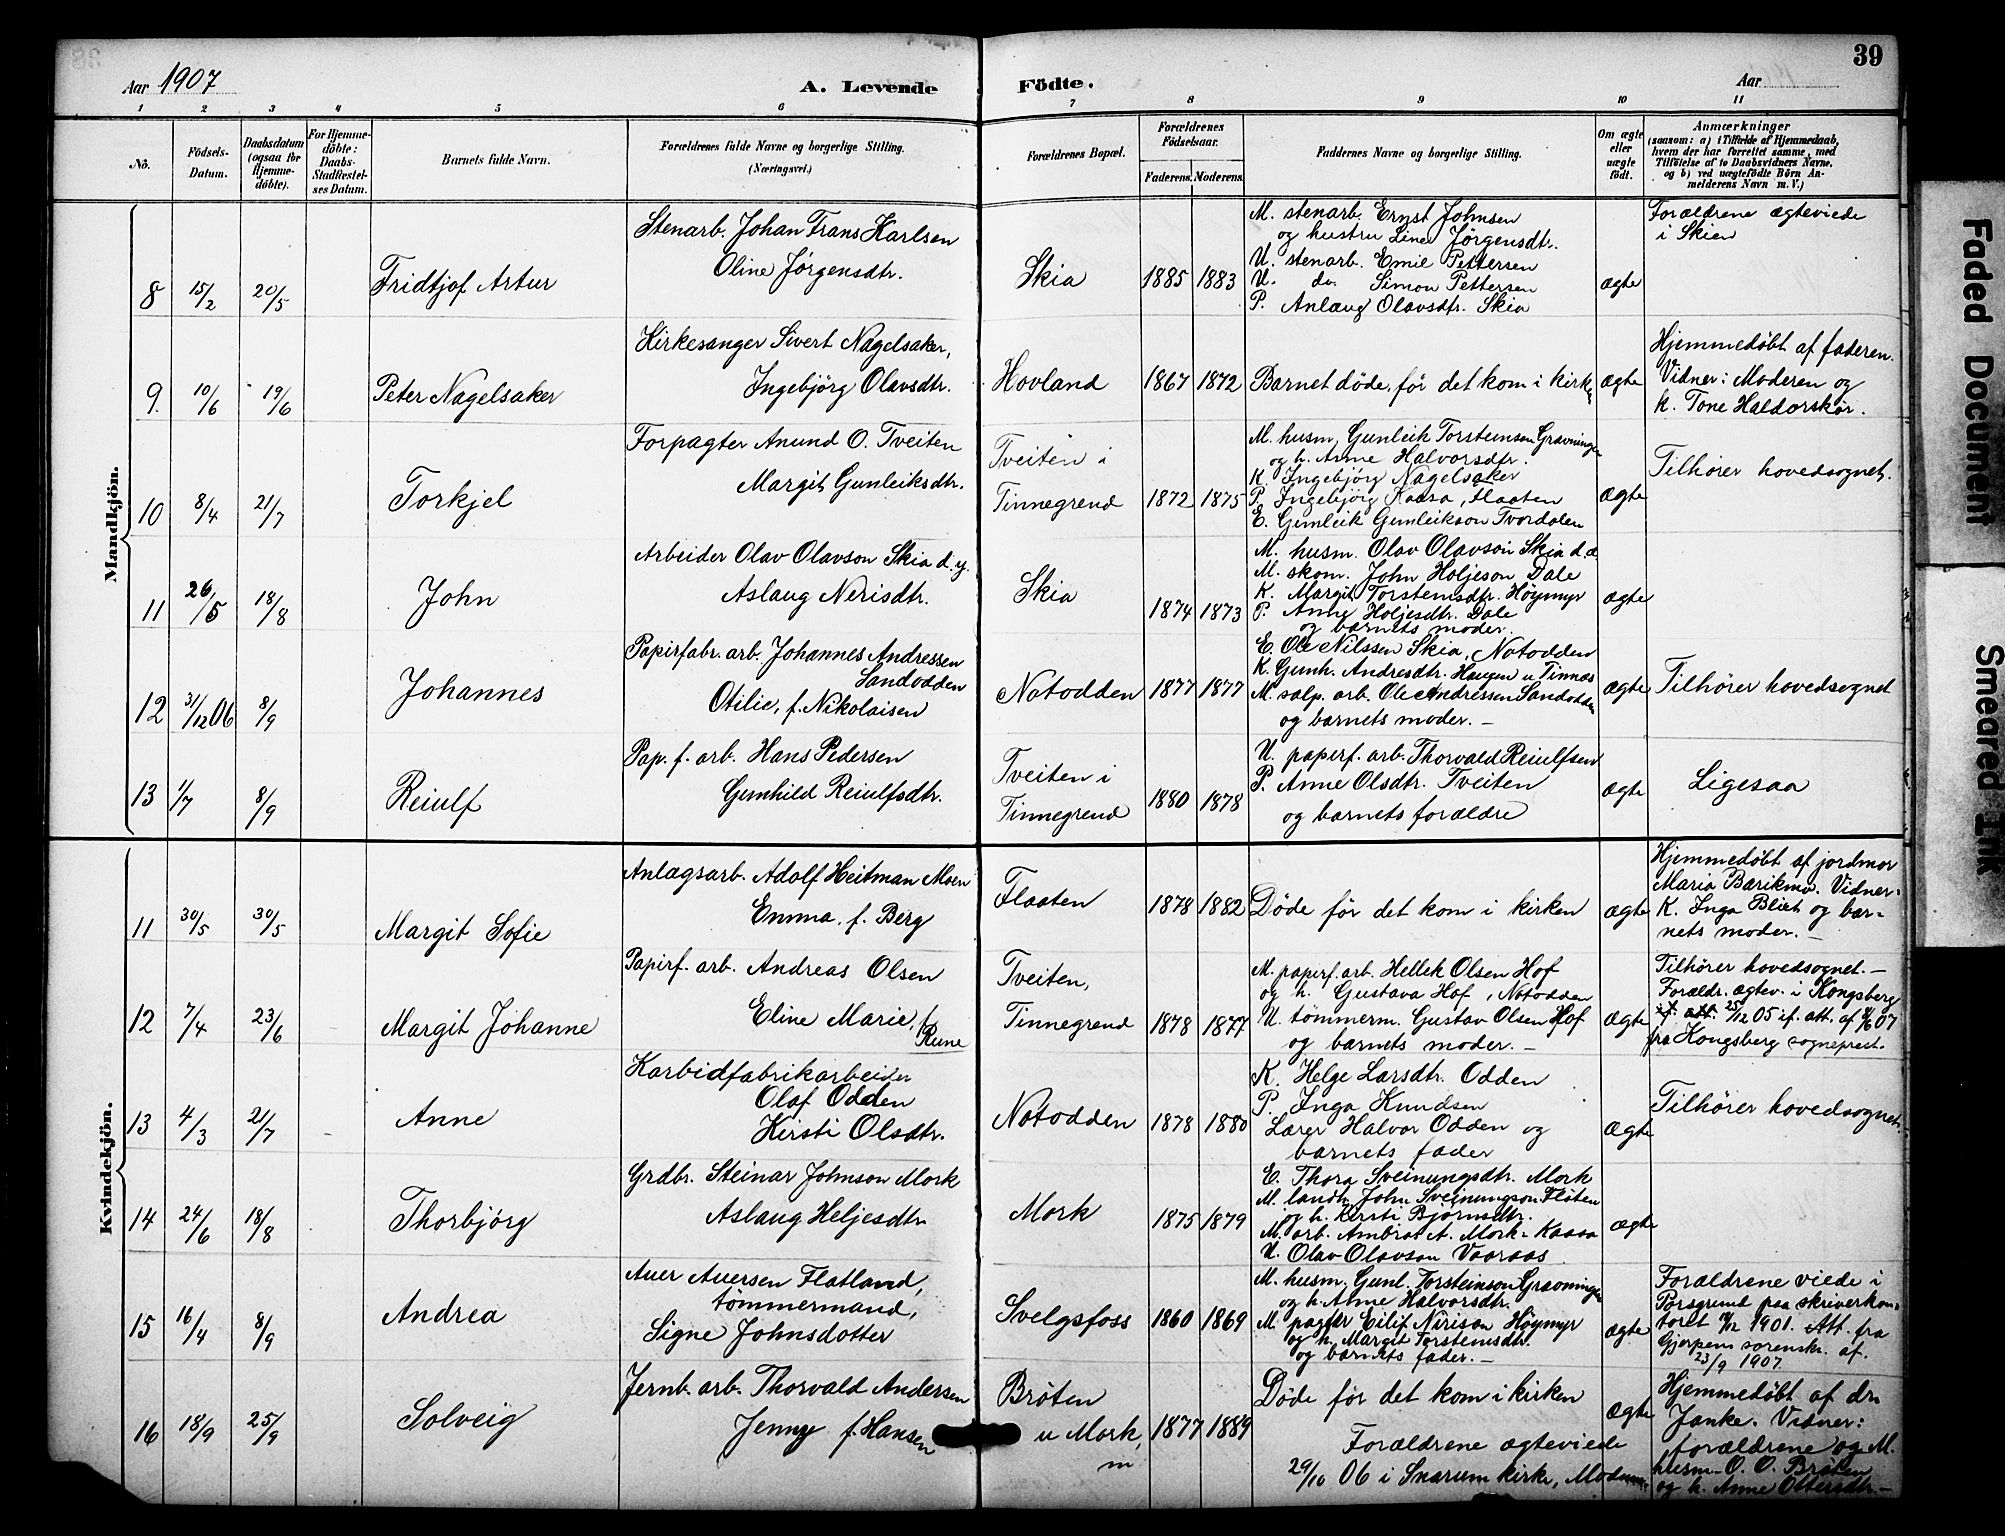 39
Aar 1907
A. Levende
Födte.
Aar
1 2 3 4 5 6 7 8 9 10 11
No.
Födsels-Datum.
Daabsdatum (ogsaa for Hjemmedöbte).
For Hjemmedöbte: Daabs-Stadfæstelses Datum.
Barnets fulde Navn.
Forældrenes fulde Navne og borgerlige Stilling.
(Næringsvei.)
Forældrenes Bopæl.
Forældrenes Födselsaar.
Faderens. Moderens.
Faddernes Navne og borgerlige Stilling.
Om ægte eller uægte födt.
Anmærkninger
(saasom: a) i Tilfælde af Hjemmedaab, hvem der har forrettet samme, med Tilföielse af to Daabsvidners Navne, og b) ved uægtefödte Börn Anmelderens Navn m. V.)
Mandkjön.
8 15/2 20/5 Fridtjof Artur
Stenarb. Johan Frans Karlsen
Oline Jørgensdtr.
Skia 1885 1883
M. stenarb. Ernst Johnsen
og hustru Line Jørgensdtr.
U. stenarb. Emil Pettersen
U. do. Simon Pettersen
P. Anlaug Olavsdtr. Skia
ægte
Forældrene ægteviede
i Skien
9. 10/6 19/6 Peter Nagelsaker
Kirkesanger Sivert Nagelsaker,
Ingebjörg Olavsdtr.
Hovland 1867 1872
Barnet døde, før det kom i kirken
ægte
Hjemmedøbt af faderen.
Vidner: Moderen og
K. Tone Haldorskør.
10 8/4 21/7 Torkjel
Forpagter Anund O. Tveiten
Margit Gunleiksdtr.
Tveiten i
Tinnegrend 1872 1875
M. husm. Gunleik Torsteinson Gravningen
og h. Anne Halvorsdtr.
K. Ingebjörg Nagelsaker
P. Ingebjörg Kaasa, Flaaten
E. Gunleik Gunleikson Tvordalen
ægte
Tilhører hovedsognet.
11 26/5 18/8 John
Arbeider Olav Olavson Skia d.y.
Aslaug Nerisdtr.
Skia 1874 1873
M. husm. Olav Olavson Skia d.æ
M. skom. John Holjeson Dale
K. Margit Torsteinsdtr. Höymyr
P. Anne Holjesdtr. Dale
og barnets moder.
ægte
12 31/12 06 8/9 Johannes
Papirfabr. arb. Johannes Andressen
Sandodden
Otilie, f. Nikolaisen
Notodden 1877 1877
E. Ole Nilssen Skia, Notodden
K. Gunh. Andresdtr. Haugen u Tinnes
M. salp. arb. Ole Andressen Sandodden
og barnets moder. —
ægte
Tilhører hovedsognet
13 1/7 8/9 Reiulf
Pap. f. arb. Hans Pedersen
Gunhild Reiulfsdtr.
Tveiten i
Tinnegrend 1880 1878
U. papirf. arb. Thorvald Reiulfsen
P. Anne Olsdtr. Tveiten
og barnets forældre
ægte
Ligesaa
Kvindekjön.
11 30/5 30/5 Margit Sofie
Anlægsarb. Adolf Heitman Moen
Emma, f. Berg
Flaaten 1878 1882
Døde før det kom i kirken
ægte
Hjemmedøbt af jordmor
Maria Barikmo. Vidner:
K. Inga Bliet og bar-
nets moder. —
12 7/4 23/6 Margit Johanne
Papirf. arb. Andreas Olsen
Eline Marie, f.
Rune
Tveiten,
Tinnegrend 1878 1877
M. papirf. arb. Hellek Olsen Hof
og h. Gustava Hof, Notodden
U. tømmerm. Gustav Olsen Hof
og barnets moder. —
ægte
Tilhører hovedsognet. —
Forældr. ægtev. i Kongsberg
25/12 05 if. att. af
fra Kongsberg sogneprest.
13 4/3 21/7 Anne
Karbidfabrikarbeider
Olaf Odden
Kirsti Olsdtr.
Notodden 1878 1880
K. Helge Larsdtr. Odden
P. Inga Knudsen
Lærer Halvor Odden og
barnets fader
ægte
Tilhører hovedsognet.
14 24/6 18/8 Thorbjörg
Grdbr. Steinar Johnson Mork
Aslaug Heljesdtr
Mork 1875 1879
E. Thora Sveinungsdtr. Mork
M. landh. John Sveinungson Flöten
og h. Kirsti Björnsdtr.
M. arb. Ambrat A. Mork-Kaasa
U. Olav Olavson Vaaraas
ægte
15 16/4 8/9 Andrea
Auer Auersen Flatland,
tømmermand,
Signe Johnsdotter
Svelgsfoss 1860 1869
M. husm. Gunl. Torsteinson Gravningen
og h. Anne Halvorsdtr.
M. Eilif Nirison Höymyr
og h. Margit Torsteinsdtr.
og barnets fader. —
ægte
Forældrene viede i
Porsgrund paa skriverkon-
toret 1901. Att. fra
Gjerpens sorensk. af.
23/9 1907.
16 18/9 25/9 Solveig
Jernb. arb. Thorvald Andersen
Jenny f. Hansen
Bröten
u Mork, 1877 1889
m
Døde før det kom i kirken
Forældrene ægteviede
29/10 06 i Snarum kirke, Modum.
ægte
Hjemmedøbt af dr.
Janke. Vidner:
forældrene og M.
husm. O. O. Bröten
og h. Anne Ottersdtr. —
Faded Document
Smeared Ink